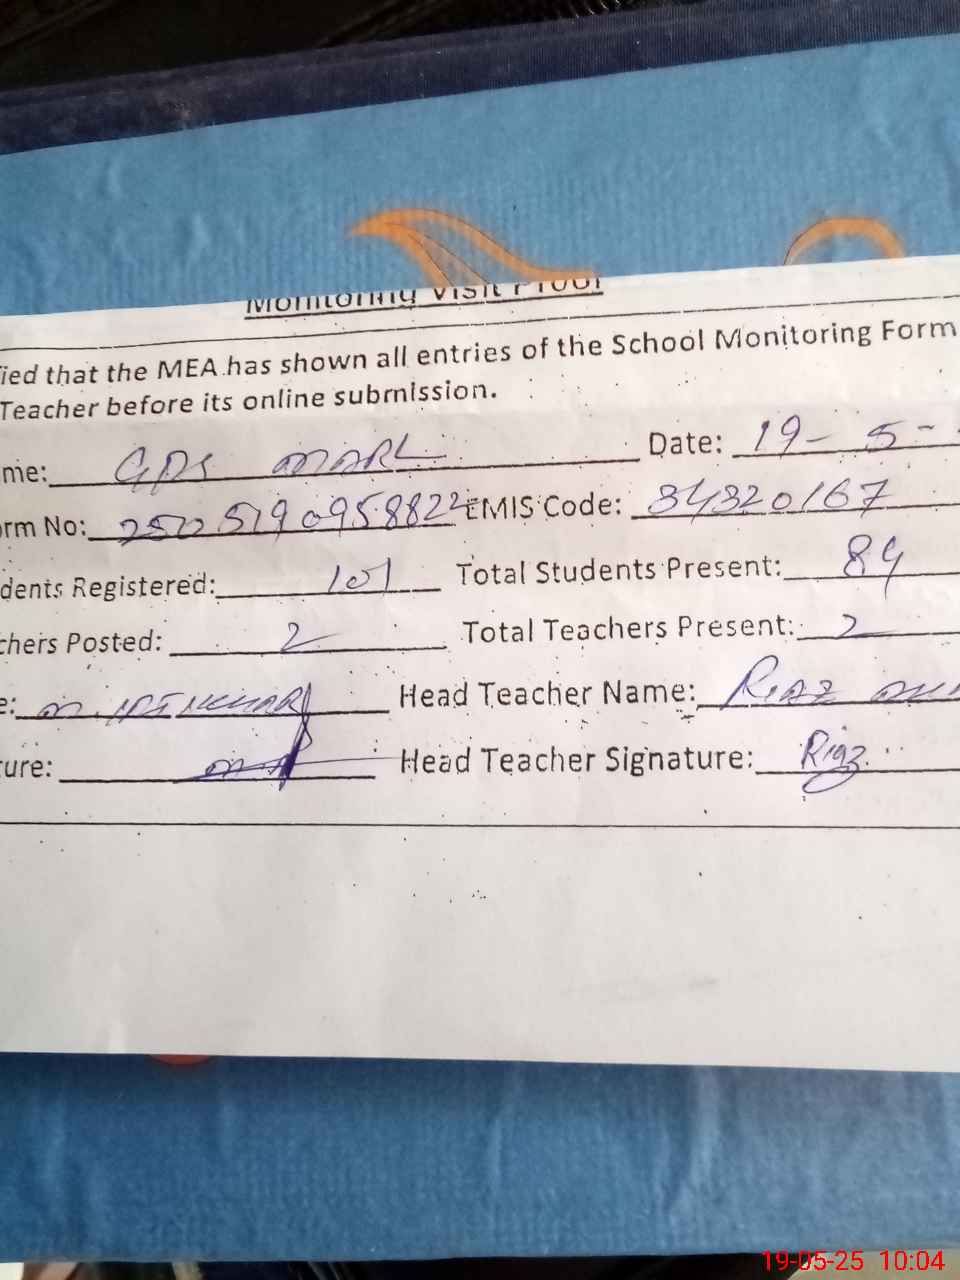 Monitoring Visit Proof
ied that the MEA has shown all entries of the School Monitoring Form
Teacher before its online submission.
me: GPS MARL Date: 19-5-
orm No: 2505190958822 EMIS Code: 34320167
dents Registered: 101 Total Students Present: 89
chers Posted: 2 Total Teachers Present: 2
e: M. Head Teacher Name: Riaz
ture: Head Teacher Signature: Riaz
19-05-25 10:04